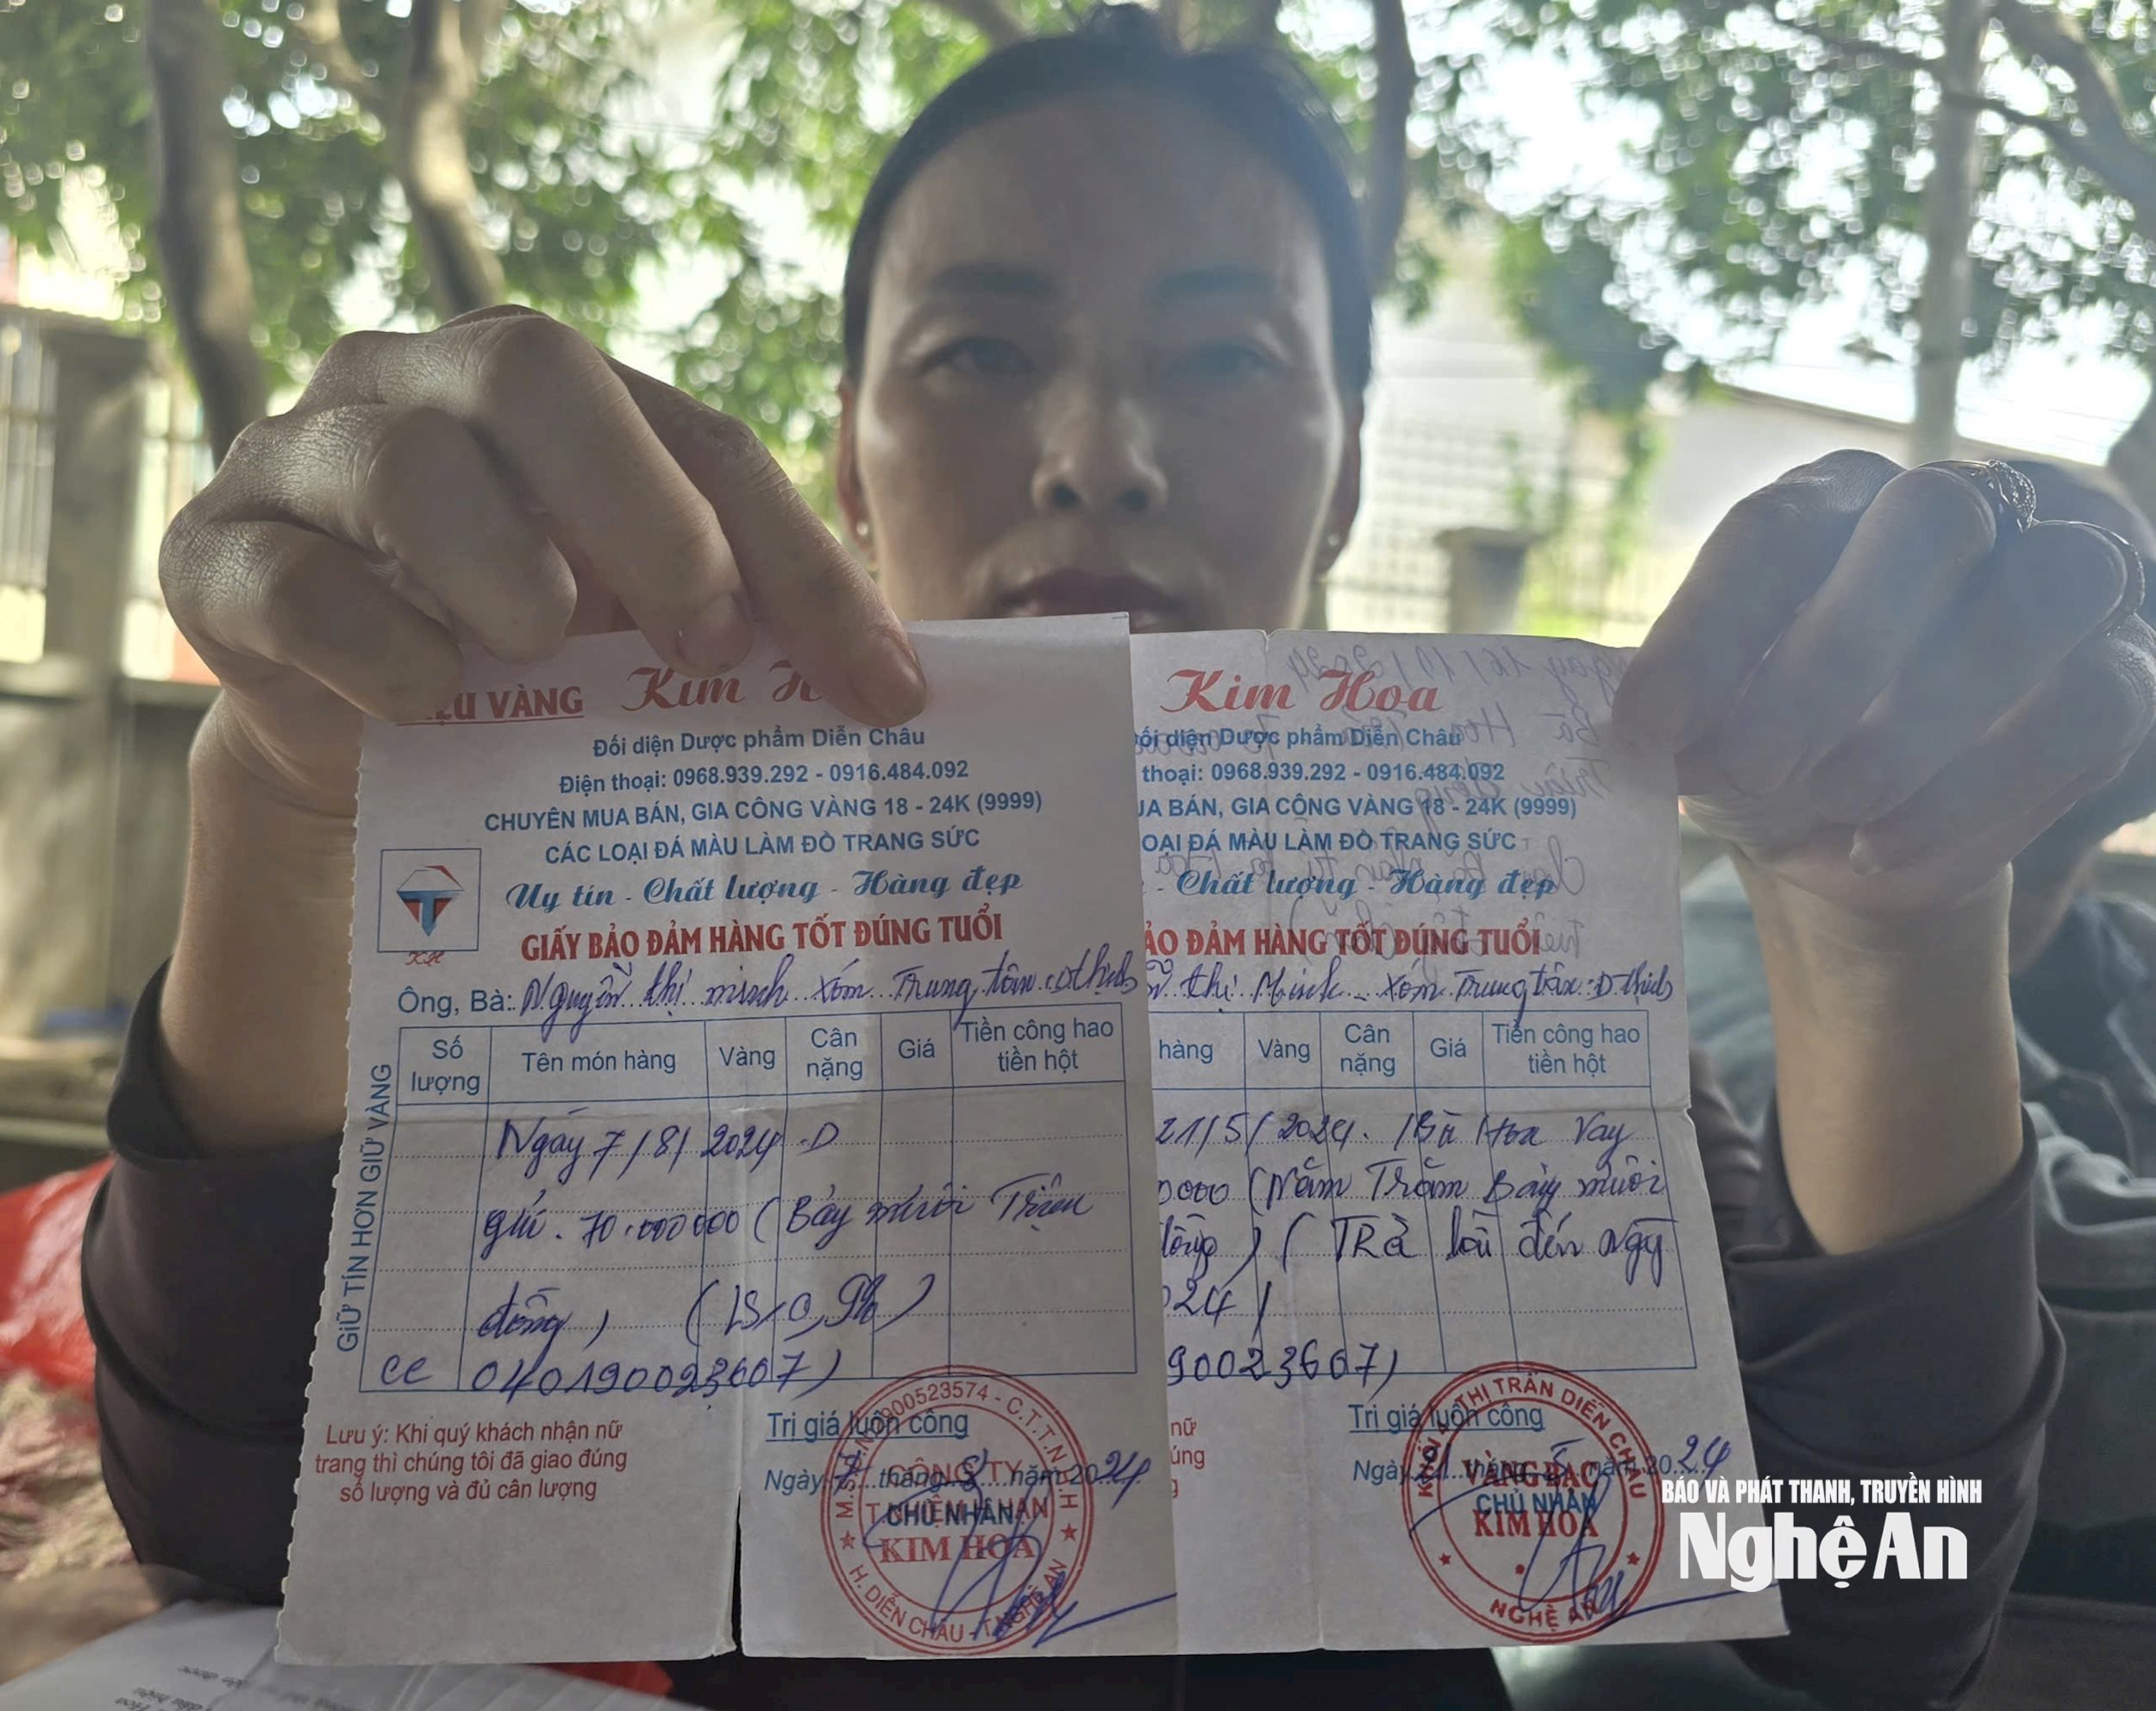 HIỆU VÀNG Kim H
Đối diện Dược phẩm Diễn Châu
Điện thoại: 0968.939.292 - 0916.484.092
CHUYÊN MUA BÁN, GIA CÔNG VÀNG 18 - 24K (9999)
CÁC LOẠI ĐÁ MÀU LÀM ĐỒ TRANG SỨC
Uy tín - Chất lượng - Hàng đẹp
GIẤY BẢO ĐẢM HÀNG TỐT ĐÚNG TUỔI
KH
Ông, Bà: Nguyễn thị minh xóm Trung tân D thịnh
GIỮ TÍN HƠN GIỮ VÀNG
Số lượng Tên món hàng Vàng Cân nặng Giá Tiền công hao tiền hột
Ngày 7/8/2024 .D
gửi. 70.000000 (Bảy mươi Triệu
đồng) (LS 0,9%)
CC 040190023607)
Lưu ý: Khi quý khách nhận nữ
trang thì chúng tôi đã giao đúng
số lượng và đủ cân lượng
Trị giá luôn công
Ngày 7 tháng 8 năm 2024
CHỦ NHÂN
M.S.D.N: 2900523574 - C.T.T.N.H.H
CÔNG TY
T.NHIỆM H.HẠN
KIM HOA
H. DIỄN CHÂU - T. NGHỆ AN
Kim Hoa
ối diện Dược phẩm Diễn Châu
thoại: 0968.939.292 - 0916.484.092
UA BÁN, GIA CÔNG VÀNG 18 - 24K (9999)
OẠI ĐÁ MÀU LÀM ĐỒ TRANG SỨC
- Chất lượng - Hàng đẹp
ẢO ĐẢM HÀNG TỐT ĐÚNG TUỔI
thị Minh xóm Trung tân D thịnh
hàng Vàng Cân nặng Giá Tiền công hao tiền hột
21/5/2024. Bà Hoa Vay
0000 (Năm Trăm Bảy mươi
đồng) (TRả lãi đến ngày
024)
90023607)
nữ
úng
Trị giá luôn công
Ngày 21 tháng 5 năm 2024
CHỦ NHÂN
KHỐI 4 - THỊ TRẤN DIỄN CHÂU
VÀNG BẠC
KIM HOA
NGHỆ AN
BÁO VÀ PHÁT THANH, TRUYỀN HÌNH
Nghệ An